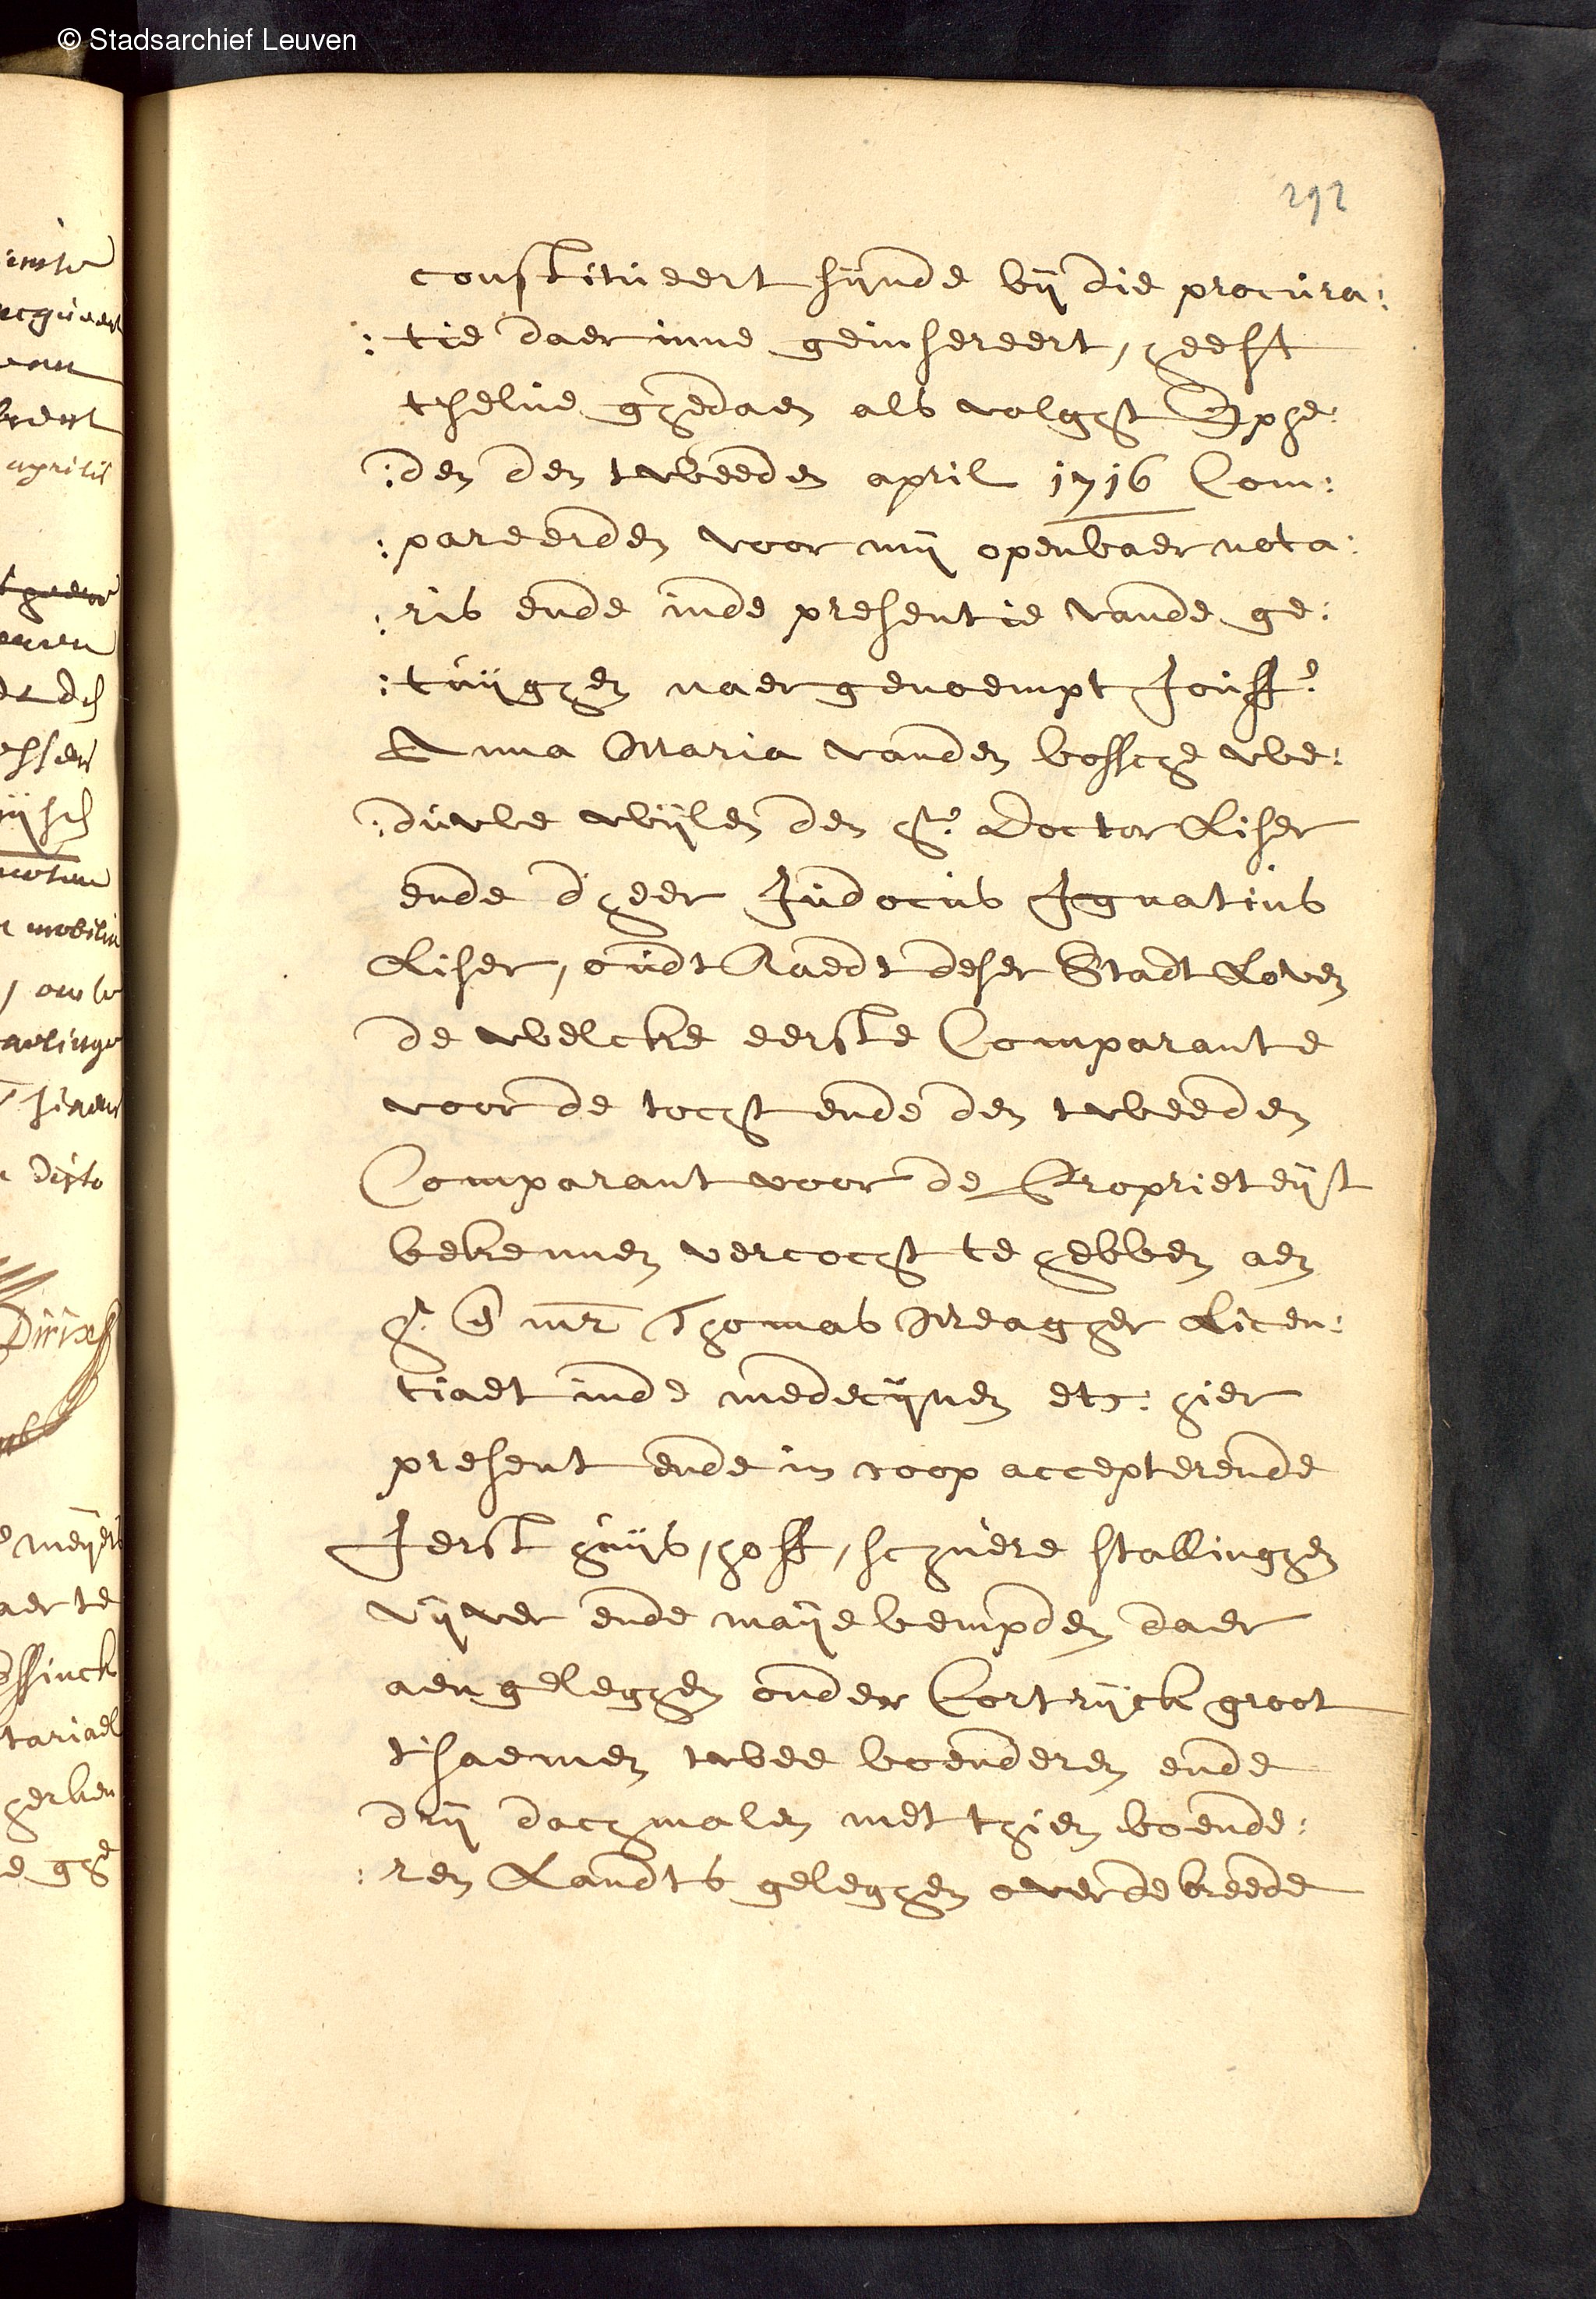 © Stadsarchief Leuven
292
constitueert sijnde bij die procura:
:tie daer inne geinsereert, heeft
tselve ghedaen als volght Ophe:
:den den tweeden april 1716 Com:
:pareerden voor mij openbaer nota:
:ris ende inde presentie vande ge:
:tuijghen naergenoempt Jouffe
Anna Maria vanden bossche we:
:duwe wijlen den he Doctor Liser
ende d'heer Judocus Ignatius
Liser, oudt Raedt deser Stadt Loven
de welcke eerste Comparante
voor de tocht ende den tweeden
Comparant voor de Proprieteijt
bekennen vercocht te hebben aen
hr en mr Thomas Meagher Licen:
tiaet inde medecijnen etc: hier
present ende in coop accepterende
Ierst huijs, hoff, schuere stallinghen
vijver ende maije bempden daer
aen geleghen onder Cortrijck groot
t'saemen twee boenderen ende
drij dachmalen met thien boende:
:ren Landts geleghen over de breede